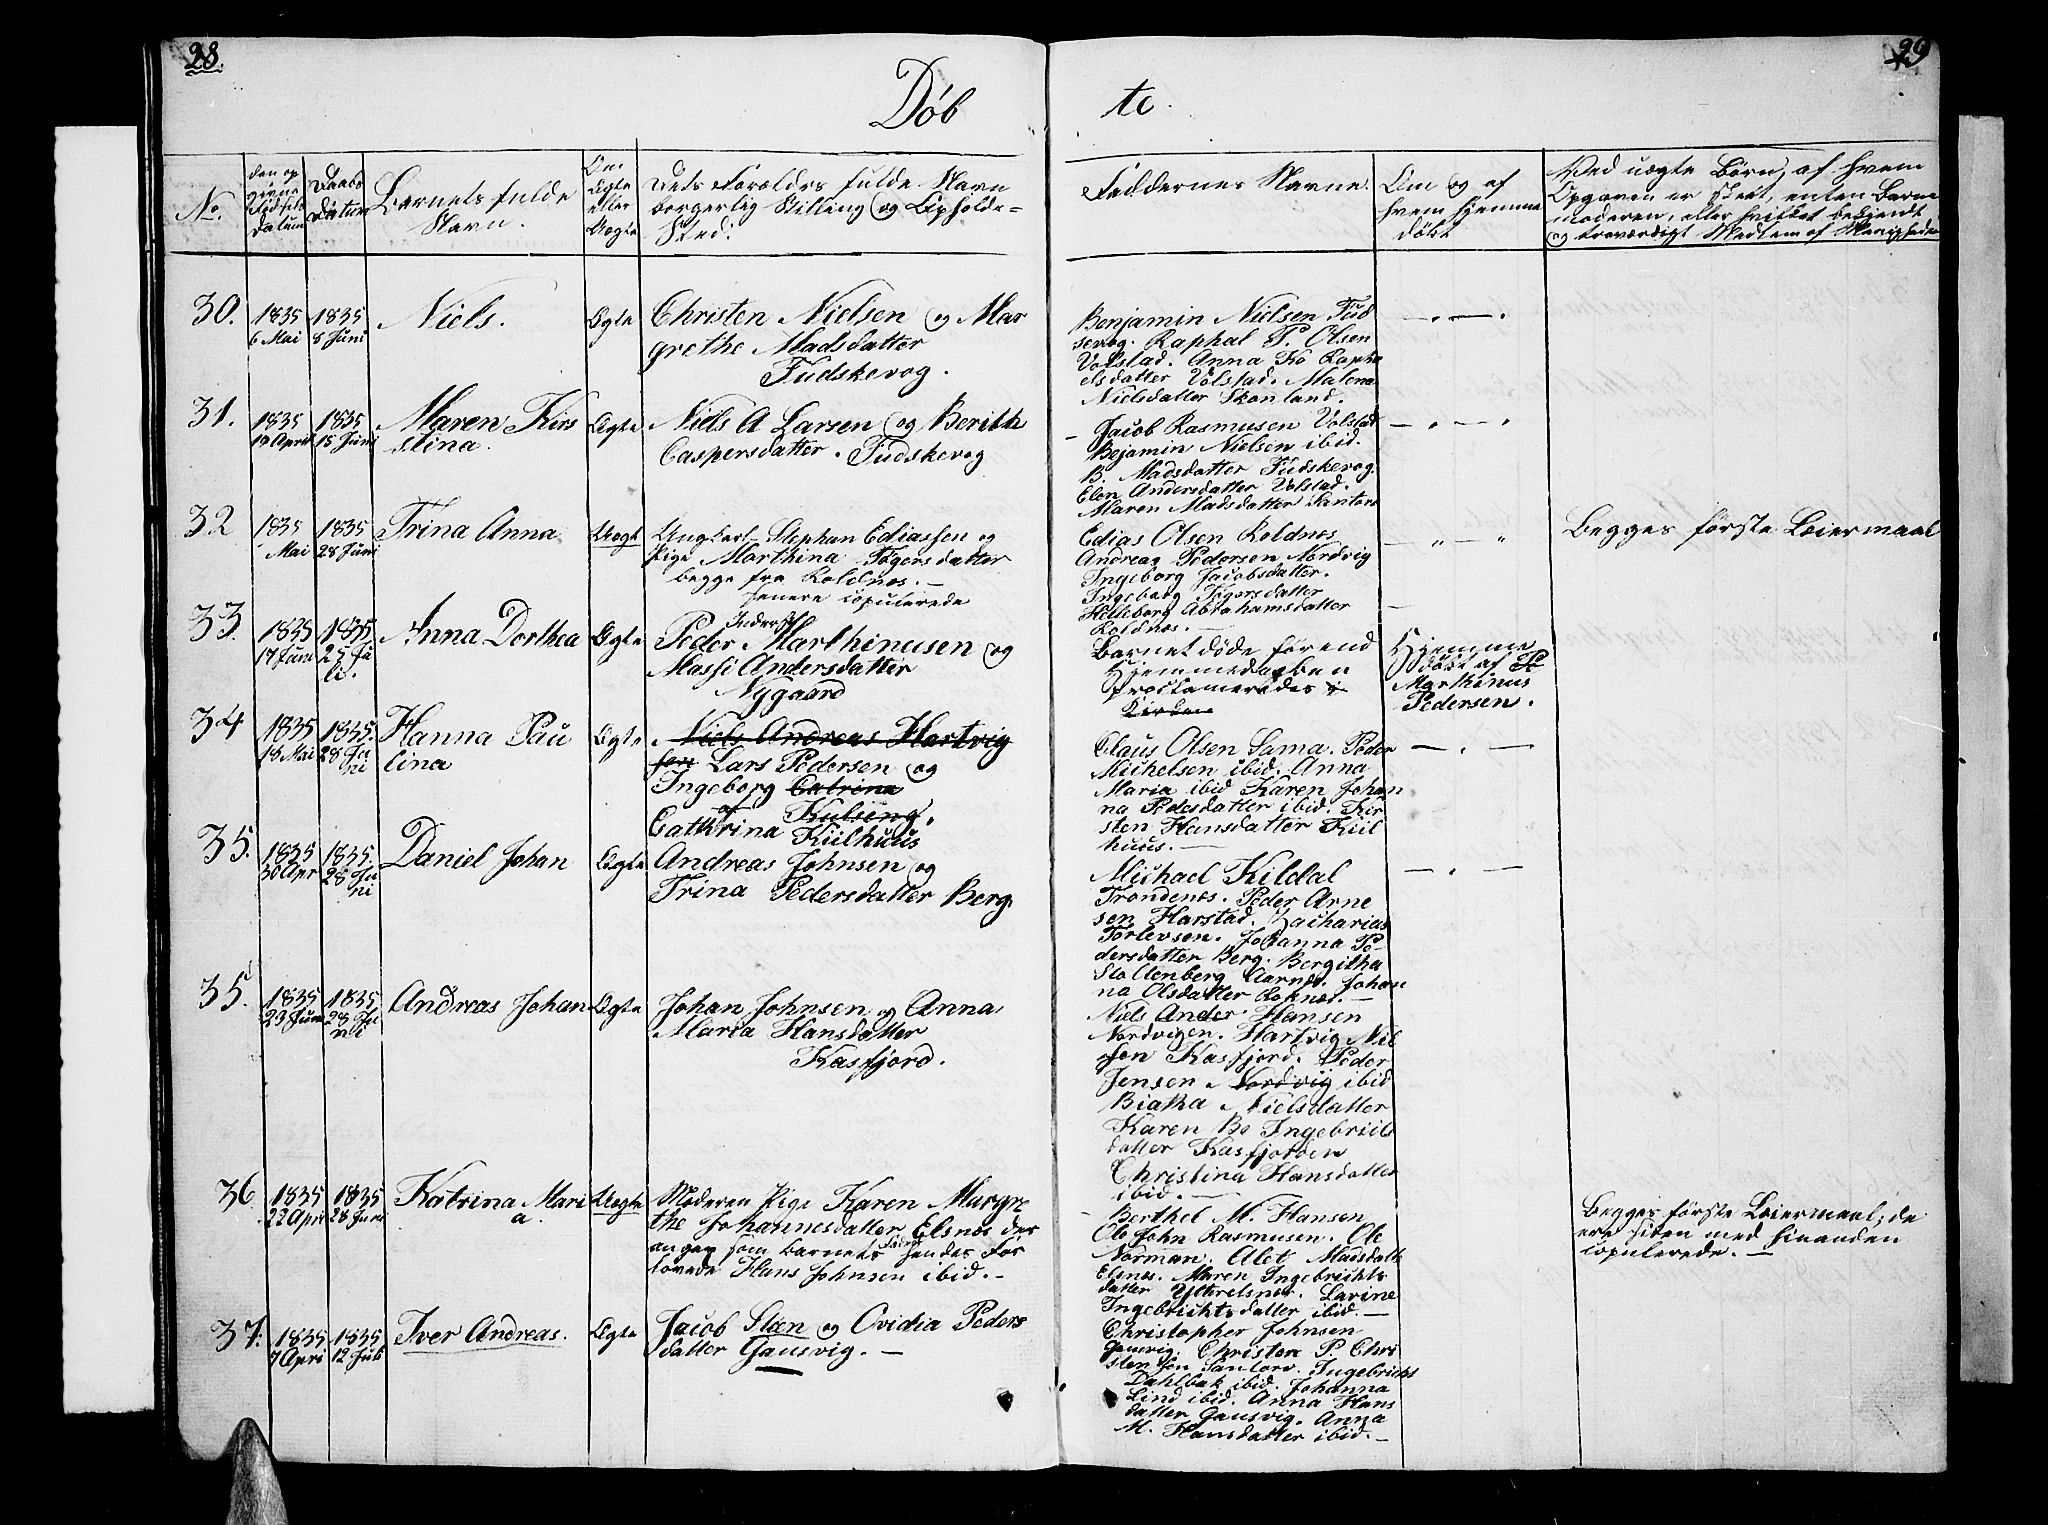 28.
29
Døb
te.
No.
den op
givne
Fødsels
datum
Daabs
Datum
Barnets fulde
Navn.
Om
Ægte
eller
Uægte
Dets Forældres fulde Navn
borgerlig Stilling og Opholds-
Sted.
Faddernes Navne.
Om og af
hvem hjemme
døbt
Ved uægte Børn, af hvem
Opgaven er skeet, enten Barne
moderen, eller hvilket bekjendt
og troværdigt Medlem af Menigheden
30.
1835
6 Mai
1835
8 Juni
Niels.
Ægte
Christen Nielsen og Mar
grethe Madsdatter
Fudskevog.
Benjamin Nielsen Fud
skevog. Raphal P. Olsen
Volstad. Anna Ko Rapha
elsdatter Volstad. Malena
Nielsdatter Skonland.
31.
1835
19 April
1835
15 Juni
Maren Kirs
stina.
Ægte
Niels A Larsen og Berith
Caspersdatter. Fudskevog
Jacob Rasmusen Volstad
Bejamin Nielsen ibid.
B. Madsdatter Fudskevog.
Elen Andersdatter Volstad.
Maren Madsdatter Santorv
32
1835
Mai
1835
28 Juni
Trina Anna
Uægt
Ungkarl Stephan Ediassen og
Pige Marthina Tøgersdatter
begge fra Roldnes. —
senere copulerede
Edias Olsen Roldnes
Andreas Pedersen Nordvig
Ingeborg Jacobsdatter.
Ingeborg Tøgersdatter
Helleborg Abrahamsdatter
Roldnes. —
Begges første Leiermaal
33.
1835
17 Juni
1835
25 Ju
li.
Anna Dorthea
Ægte
Inderst
Peder Marthinusen og
Massi Andersdatter
Nygaard
Barnet døde førend
Hjemmedaaben
proclameredes i
Kirken
Hjemme
døbt af P
Marthinus
Pedersen.
34
1835
18 Mai
1835.
28 Ju
ni
Hanna Pau
lina
Ægte
Niels Andreas Hartvig
sen Lars Pedersen og
Ingeborg Catrina
af Kulseng.
Cathrina Kiilhuus
Claus Olsen Sama. Peder
Michelsen ibid. Anna
Maria ibid Karen Johan
na Pedesdatter ibid. Kir
sten Hansdatter Kiil
huus. —
35.
1835
30 Apr
1835.
28 Ju
ni
Daniel Johan
Ægte
Andreas Johnsen og
Trina Pedersdatter Berg.
Michael Kildal
Trondenes. Peder Arne
sen Harstad. Zacharias
Torlevsen. Johanna Pe-
dersdatter Berg. Bergitha
Stoltenberg Aarnes. Johan
na Olsdatter Roknes. —
35.
1835
23 Juni
1835
28 Ju
ni
Andreas Johan
Ægte
Johan Johnsen og Anna
Maria Hansdatter
Kasfjord.
Niels Ander Hansen
Nordvigen. Hartvig Niel
sen Kasfjord. Peder
Jensen Nordvig ibid
Biatha Nielsdatter
Karen Be Ingebricts
datter Kasfjorden
Christina Hansdatter
ibid. —
36
1835
22 Apri
1835
28 Juni
Katrina Mari
a.
Uægte
Moderen Pige Karen Margre
the Johannesdatter Elsnes der
angav som Barnets Fader hendes For
lovede Hans Johnsen ibid. —
Berthel M. Hansen
Ole John Rasmusen. Ole
Norman. Alet Madsdatt
Elsnes. Maren Ingebrichts
datter Ytterelsnes. Lavine
Ingebrichtsdatter ibid. —
Begges første Leiermaal; de
ere siden med hinanden
copulerede. —
37.
1835
7 Apri
1835
12 Juli
Iver Andreas.
Ægte
Jacob Steen og Ovidia Peders
datter Gausvig. —
Christopher Johnsen
Gausvig. Christen P. Chri
stensen Santorv. Ingebricht
Dahlbak ibid. Johanna
Lind ibid. Anna Hans
datter Gausvig. Anna
M. Hansdatter ibid. —